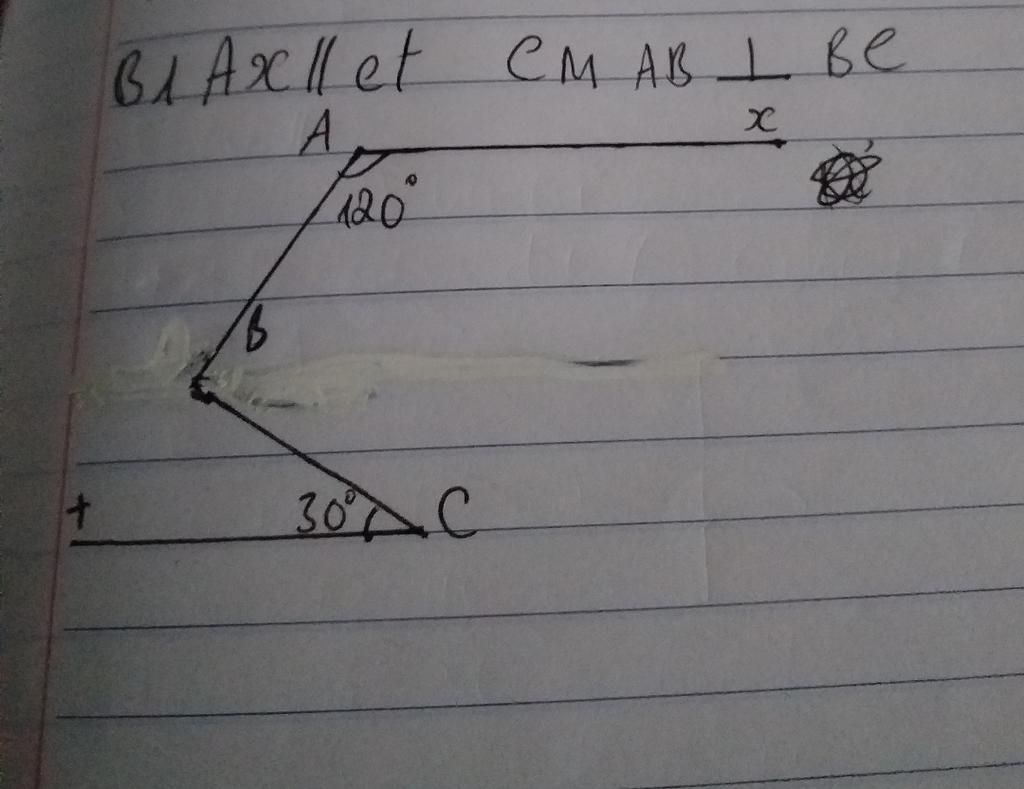 B1 Ax // Ct CM AB ⊥ BC
A
x
120°
B
t
30°
C